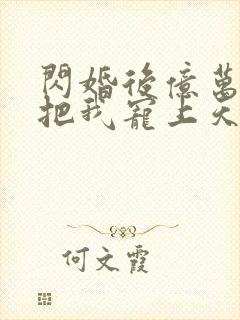 閃婚後億萬
把我寵上天
何文霞